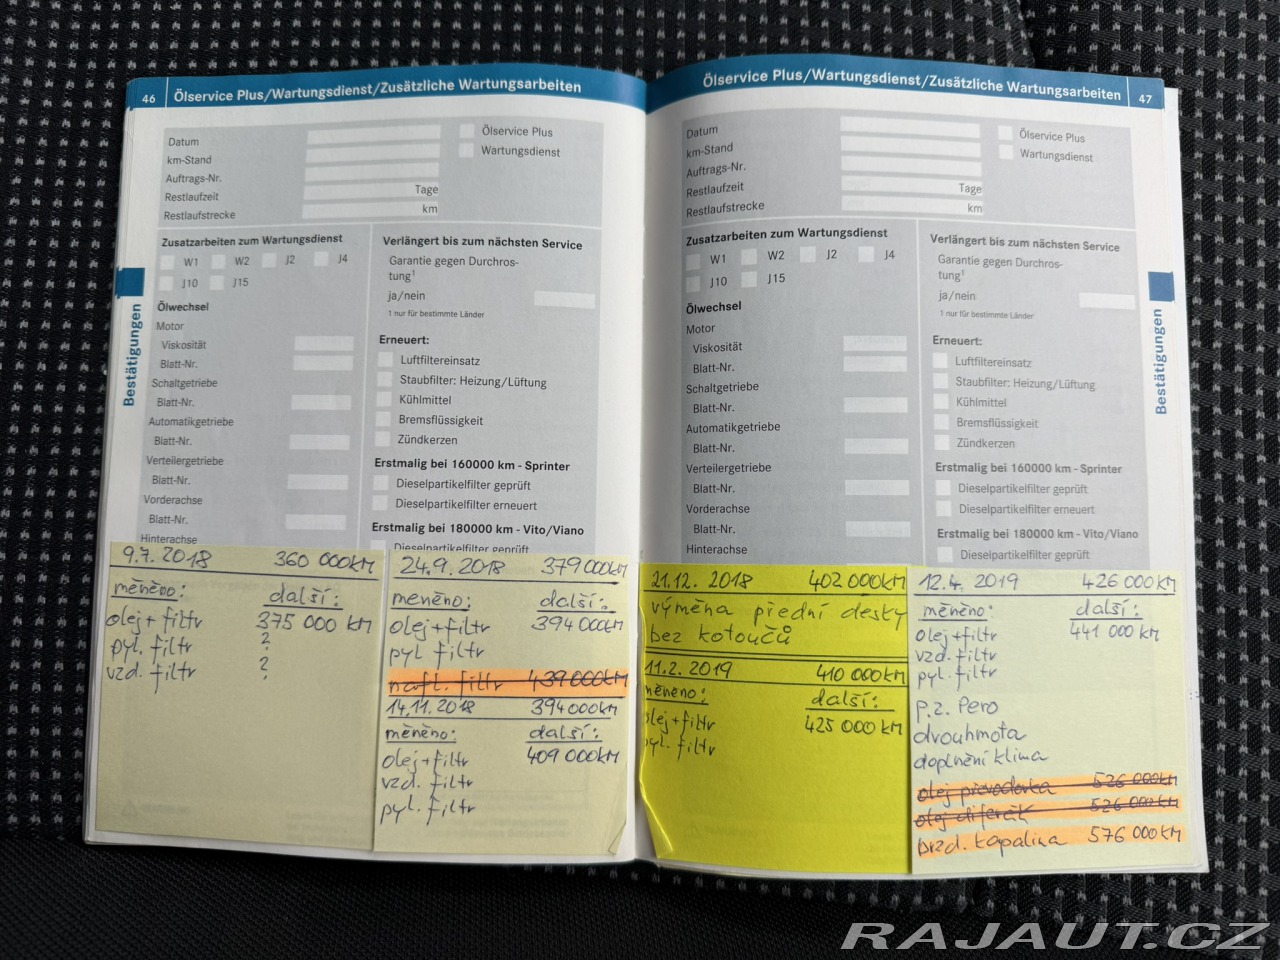 46 Ölservice Plus/Wartungsdienst/Zusätzliche Wartungsarbeiten
Datum
km-Stand
Auftrags-Nr.
Restlaufzeit Tage
Restlaufstrecke km
Ölservice Plus
Wartungsdienst
Zusatzarbeiten zum Wartungsdienst
W1 W2 J2 J4
J10 J15
Ölwechsel
Motor
Viskosität
Blatt-Nr.
Schaltgetriebe
Blatt-Nr.
Automatikgetriebe
Blatt-Nr.
Verteilergetriebe
Blatt-Nr.
Vorderachse
Blatt-Nr.
Hinterachse
Verlängert bis zum nächsten Service
Garantie gegen Durchros-
tung¹
ja/nein
1 nur für bestimmte Länder
Erneuert:
Luftfiltereinsatz
Staubfilter: Heizung/Lüftung
Kühlmittel
Bremsflüssigkeit
Zündkerzen
Erstmalig bei 160000 km - Sprinter
Dieselpartikelfilter geprüft
Dieselpartikelfilter erneuert
Erstmalig bei 180000 km - Vito/Viano
Dieselpartikelfilter geprüft
Bestätigungen
9.7. 2018 360 000KM
měněno: další:
olej+filtr 375 000 KM
pyl. filtr ?
vzd. filtr ?
24.9. 2018 379 000KM
měněno: další:
olej+filtr 394 000KM
pyl filtr
naft. filtr 439 000KM
14.11.2018 394 000KM
měněno: další:
olej+filtr 409 000KM
vzd. filtr
pyl. filtr
Ölservice Plus/Wartungsdienst/Zusätzliche Wartungsarbeiten 47
Datum
km-Stand
Auftrags-Nr.
Restlaufzeit Tage
Restlaufstrecke km
Ölservice Plus
Wartungsdienst
Zusatzarbeiten zum Wartungsdienst
W1 W2 J2 J4
J10 J15
Ölwechsel
Motor
Viskosität
Blatt-Nr.
Schaltgetriebe
Blatt-Nr.
Automatikgetriebe
Blatt-Nr.
Verteilergetriebe
Blatt-Nr.
Vorderachse
Blatt-Nr.
Hinterachse
Verlängert bis zum nächsten Service
Garantie gegen Durchros-
tung¹
ja/nein
1 nur für bestimmte Länder
Erneuert:
Luftfiltereinsatz
Staubfilter: Heizung/Lüftung
Kühlmittel
Bremsflüssigkeit
Zündkerzen
Erstmalig bei 160000 km - Sprinter
Dieselpartikelfilter geprüft
Dieselpartikelfilter erneuert
Erstmalig bei 180000 km - Vito/Viano
Dieselpartikelfilter geprüft
Bestätigungen
21.12. 2018 402 000KM
výměna přední desky
bez kotoučů
11.2. 2019 410 000KM
měněno: další:
olej+filtr 425 000 KM
pyl. filtr
12.4. 2019 426 000KM
měněno: další:
olej+filtr 441 000 KM
vzd. filtr
pyl. filtr
p.z. pero
dvouhmota
doplnění klima
olej převodovka 526 000KM
olej diferák 526 000KM
brzd. kapalina 576 000KM
RAJAUT.CZ